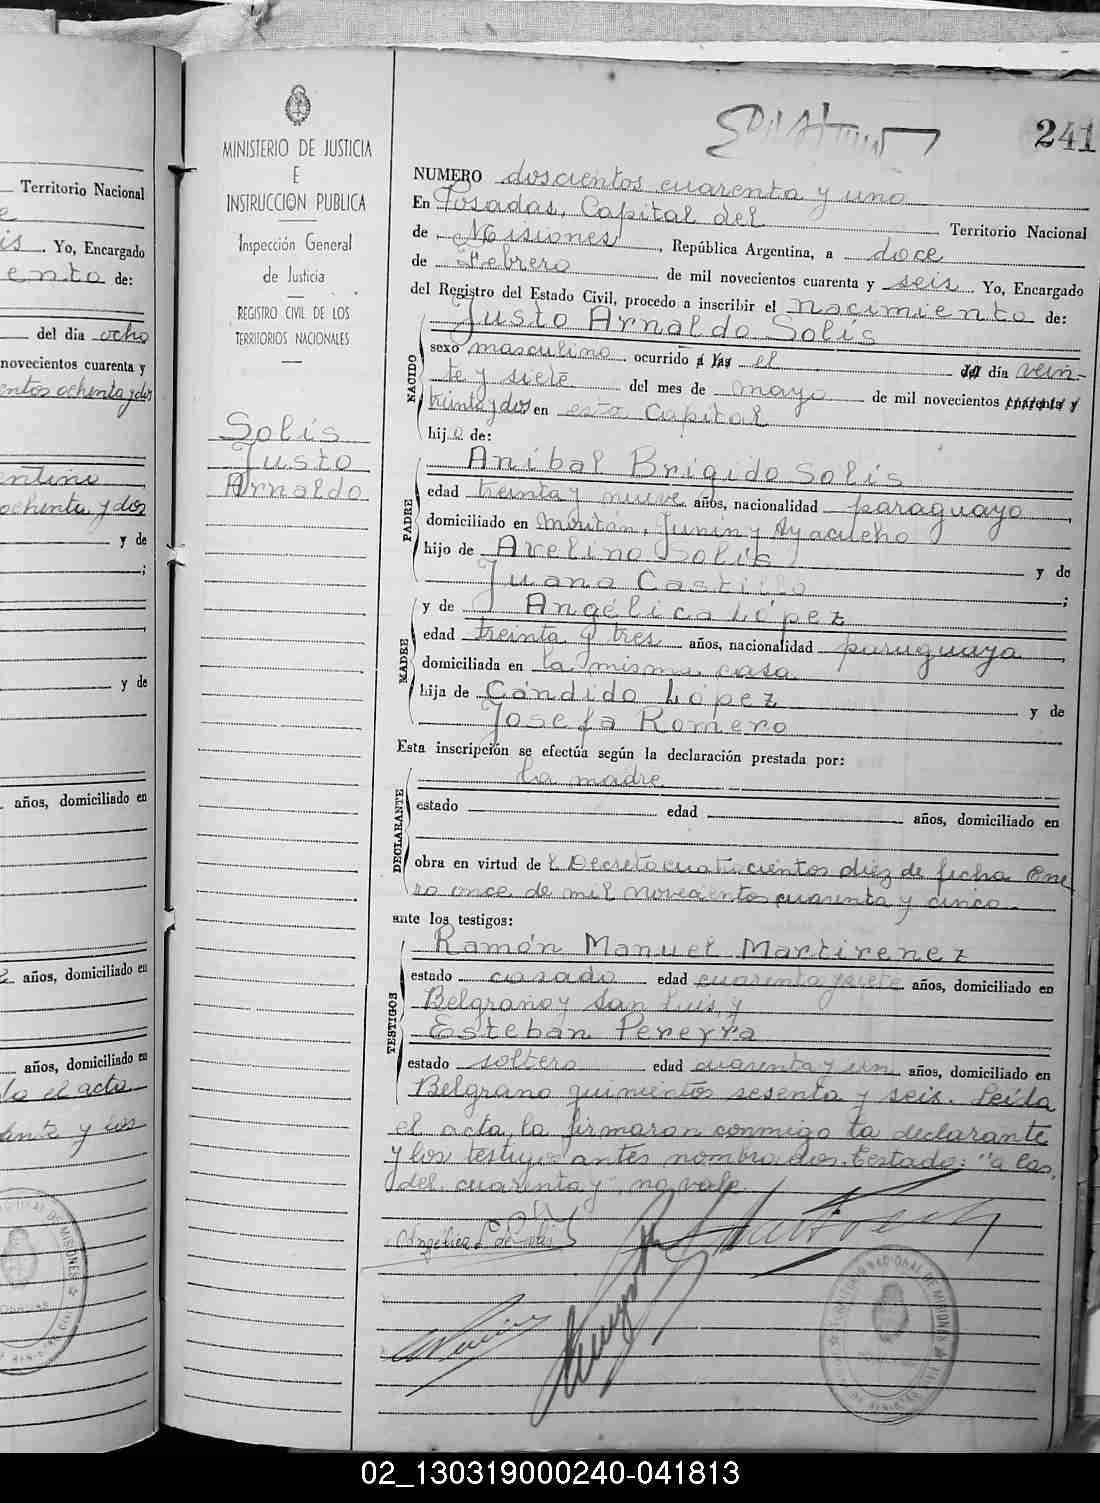 Territorio Nacional
Yo, Encargado
ento de:
del día ocho
novecientos cuarenta y
entos ochenta y dos
entino
ochenta y dos
y de
;
y de
años, domiciliado en
años, domiciliado en
años, domiciliado en
el acta
y los
MINISTERIO DE JUSTICIA
E
INSTRUCCION PUBLICA
Inspección General
de Justicia
REGISTRO CIVIL DE LOS
TERRITORIOS NACIONALES
Solís
Justo
Arnaldo
241
NUMERO doscientos cuarenta y uno
En Posadas, Capital del Territorio Nacional
de Misiones, República Argentina, a doce
de Febrero de mil novecientos cuarenta y seis Yo, Encargado
del Registro del Estado Civil, procedo a inscribir el nacimiento de:
NACIDO
Justo Arnaldo Solís
sexo masculino ocurrido a las el del día vein-
te y siete del mes de mayo de mil novecientos cuarenta y
treinta y dos en esta Capital
hijo de:
PADRE
Aníbal Brígido Solís
edad treinta y nueve años, nacionalidad paraguayo,
domiciliado en Junín y Ayacucho
hijo de Avelino Solís y de
Juana Castillo;
MADRE
y de Angélica López
edad treinta y tres años, nacionalidad paraguaya,
domiciliada en la misma casa
hija de Cándido López y de
Josefa Romero
Esta inscripción se efectúa según la declaración prestada por:
DECLARANTE
la madre
estado edad años, domiciliado en
obra en virtud del Decreto cuatrocientos diez de fecha Ene
ro once de mil novecientos cuarenta y cinco
ante los testigos:
TESTIGOS
Ramón Manuel Martirenez
estado casado edad cuarenta y siete años, domiciliado en
Belgrano y San Luis, y
Esteban Pereyra
estado soltero edad cuarenta y un años, domiciliado en
Belgrano quinientos sesenta y seis. Leída
el acta, la firmaron conmigo la declarante
y los testigos antes nombrados. Testado: "a las,
del cuarenta y", no vale.
Angélica L. de Solís
TERRITORIO NACIONAL DE MISIONES
02_130319000240-041813